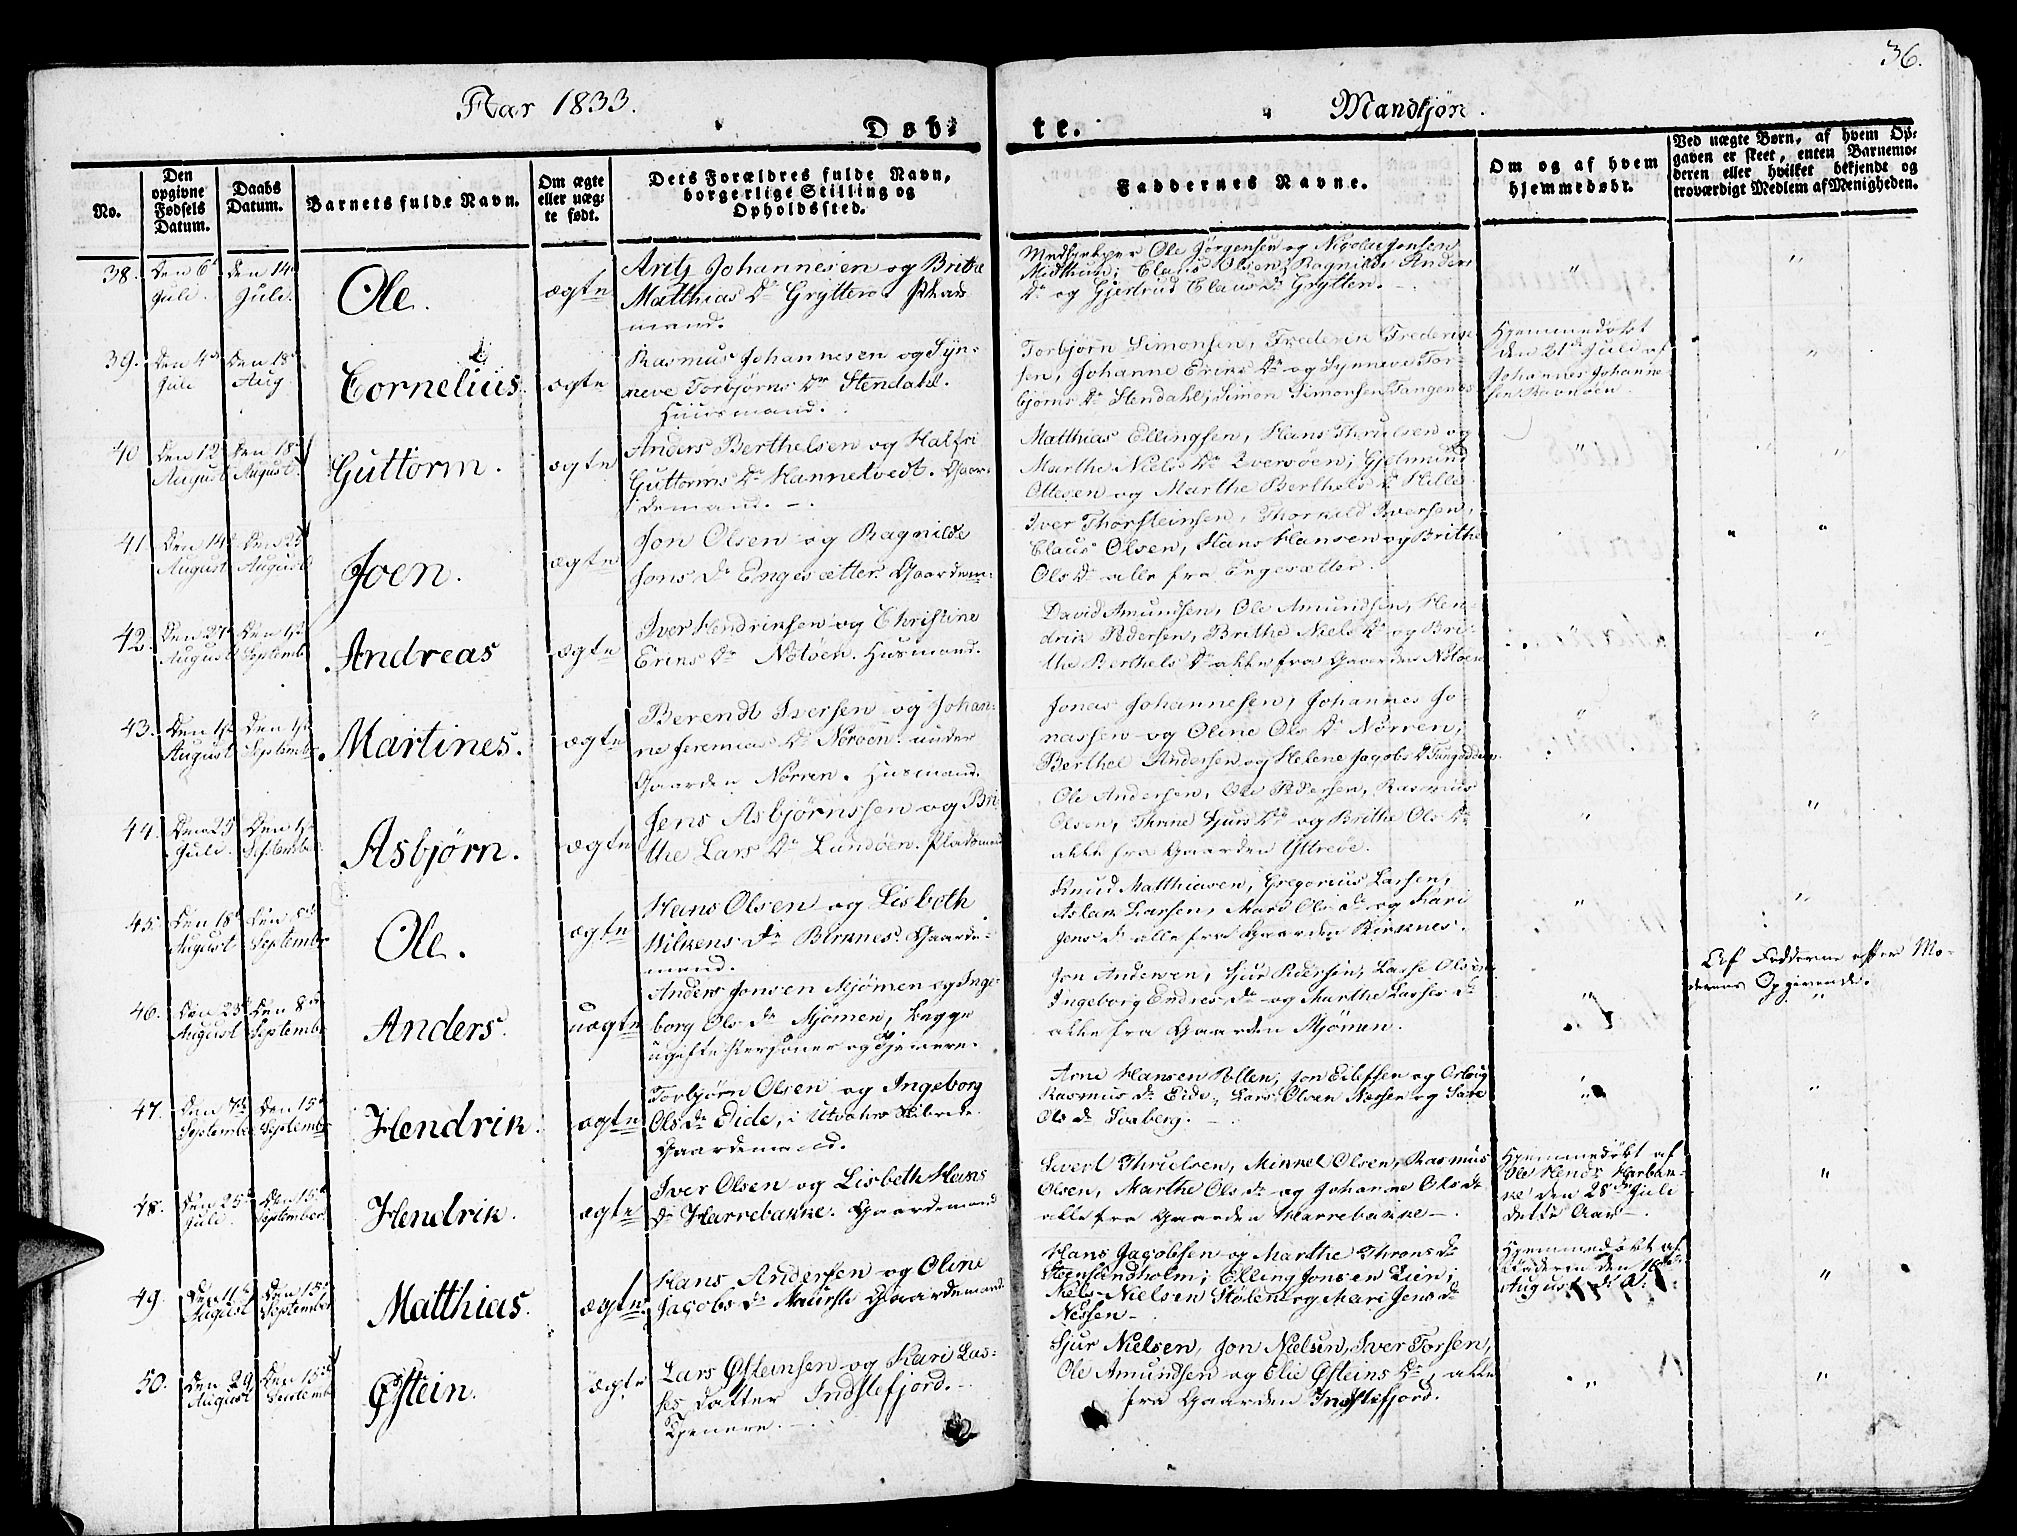 36.
Aar 1833.
Mandkjøn.
Døb-
te.
No.
Den
opgivne
Fødsels
Datum.
Daabs
Datum.
Barnets fulde Navn.
Om ægte
eller uæg-
te født.
Dets Forældres fulde Navn,
borgerlige Stilling og
Opholdssted.
Faddernes Navne.
Om og af hvem
hjemmedøbt.
Ved uægte Børn, af hvem Op-
gaven er skeet, enten Barnemo-
deren eller hvilket bekjendt og
troværdigt Medlem af Menigheden.
38.
Den 6te
Juli.
Den 14de
Juli.
Ole.
ægte
Johannesen og Brithe
Matthias Dr Grytten. Plads
mand.
Ole Jørgensen og Nicolai Jensen
Midthun; Claus Olsen, Ragnilde Anders
Dr og Gjertrud Claus Dr Grytten.
"
"
39.
Den 4de
Juli
Den 18de
Aug
Cornelius.
ægte
Rasmus Johannesen og Syn-
neve Torbjørns Dr Stendahl.
Huusmand.
Torbjørn Simonsen, Frederik Frederik-
sen, Johanne Eriks Dr og Synneve Tor-
bjørns Dr Stendahl; Simon Simonsen Tangenes
Hjemmedøbt
den 21de Juli af
Johannes Johanne-
sen Ravnøen
"
40
Den 12
August
Den 18de
August
Guttorm.
ægte
Anders Berthelsen og Halfri
Guttorms Dr Hannetvedt. Gaar-
demand.
Matthias Ellingsen, Hans Thruelsen og
Marthe Niels Dr Iversøen; Gjelmund
Ottesen og Marthe Berthels Dr Hille
"
"
41
Den 14de
August
August
Joen.
ægte
Jon Olsen og Ragnilde
Jons Dr Engesætter. Gaardem.
Iver Thorsteinsen, Thorkild Iversen,
Claus Olsen, Hans Hansen og Brithe
Ols Dr alle fra Engesætter.
"
"
42.
Den 27de
August
Den 1ste
Septembr
Andreas
ægte
Iver Hendriksen og Christine
Eriks Dr Notøen. Husmand.
David Amundsen, Ole Amundsen, Hen-
drik Pedersen, Brithe Niels Dr og Bri-
the Berthels Dr alle fra Gaarden Notøen
"
"
43.
Den 1ste
August
Den 1ste
September
Martines.
ægte
Berendt Iversen og Johan-
ne Jeremias Dr Nørøen under
Gaarden Norren. Husmand.
Jonas Johannesen, Johannes Jo-
nassen og Oline Ols Dr Norren;
Berthel Andersen og Helene Jacobs Dr
"
"
44.
Den 25
Juli.
Den 1ste
September
Asbjørn.
ægte
Jens Asbjørnssen og Bri-
the Lars Dr Lundøen. Pladsmand
Ole Andersen, Ole Pedersen, Rasmus
Olsen, Thrine Sjurs Dr og Brithe Ols Dr
alle fra Gaarden Yttrøe.
"
"
45.
Den 18de
August
Den 8de
September
Ole.
ægte
Hans Olsen og Lisbeth
Wilkens Dr Birknes. Gaarde-
mand.
Knud Matthiasen, Gregorius Larsen,
Aslak Larsen, Mari Ols Dr og Kari
Jens Dr alle fra Gaarden Birknes.
"
"
46.
August
Den 8de
September
Anders.
uægte
Anders Jonsen Mjømen og Inge-
borg Ols Dr Mjømen, begge
ugifte Personer og Tjenere.
Jon Andersen, Sjur Pedersen, Lasse Olsen,
Ingeborg Endres Dr og Marthe Lasses Dr
alle fra Gaarden Mjømen.
"
Af Fadderne efter Mo-
derens Opgivende.
"
47.
Den 7de
September
Den 15de
September
Hendrik.
ægte
Torbjørn Olsen og Ingeborg
Ols Dr Eide, i Utvær Skibrede.
Gaardemand.
Arne Hansen Pollen; Jon Eilefsen og
Rasmus Dr Eide, Lars Olsen Nessen og
Ols Dr Svaberg.
"
"
48.
Den 25de
Juli.
D. 15de
September
Hendrik.
ægte
Iver Olsen og Lisbeth Hans
Dr Harrebakke. Gaardemand
Sivert Thruelsen, Mikkel Olsen, Rasmus
Olsen, Marthe Ols Dr og Johanne Ols Dr
alle fra Gaarden Harrebakke.
Hjemmedøbt af
Ole Hendr. Harbak-
ke den 28de Juli
dette Aar.
"
49.
August
Den 15de
September
Matthias.
ægte
Hans Andersen og Oline
Jacobs Dr Gaardemand
Hans Jacobsen og Marthe Throns Dr
Steensundholm; Elling Jonsen Lien;
Niels Nielsen Stølen og Mari Jens Dr
Nessen
Hjemmedøbt af
Faderen den
August d. A.
"
50.
Den 29
August
Den 15de
Septembr
Østein.
ægte
Lars Østeinsen og Kari Las-
ses datter Indstefjord.
Tjenere.
Sjur Nielsen, Jon Nielsen, Iver Torsen,
Ole Amundsen og Elie Østeins Dr, alle
fra Gaarden Indstefjord.
"
"